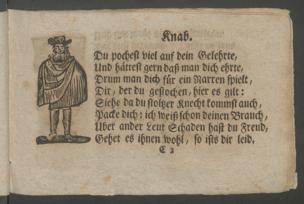 Knab.
Du pochest viel auf dein Gelehrte,
Und hättest gern daß man dich ehrte,
Drum man dich für ein Narren spielt,
Dir, der du gestochen, hier es gilt:
Siehe da du stoltzer Knecht kommst auch,
Packe dich: ich weiß schon deinen Brauch,
Uber ander Leut Schaden hast du Freud,
Gehet es ihnen wohl, so ists dir leid.
C 2